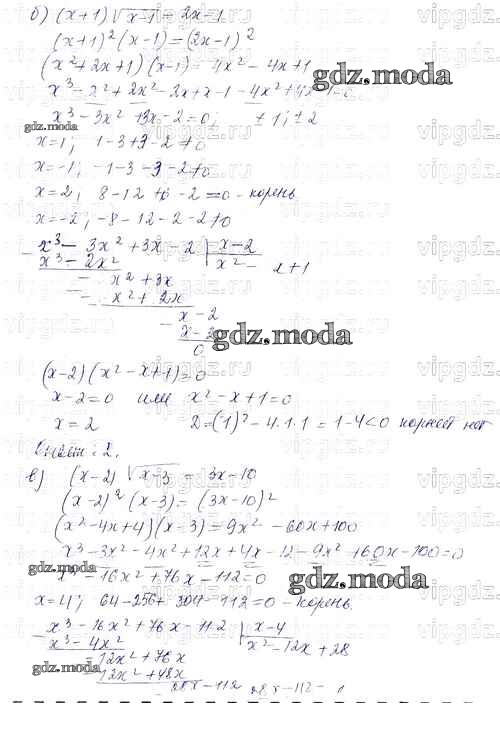 б) (x+1)√x-1 = 2x-1
(x+1)² (x-1) = (2x-1)²
(x²+2x+1) (x-1) = 4x² - 4x+1
gdz.moda
x³ - x² + 2x² - 2x + x - 1 - 4x² + 4x - 1 = 0
x³ - 3x² + 3x - 2 = 0; ±1; ±2
gdz.moda
x=1; 1-3+3-2≠0
x=-1; -1-3-3-2≠0
x=2; 8-12+6-2=0 - корень
x=-2; -8-12-2-2≠0
x³ - 3x² + 3x - 2 | x-2
x³ - 2x² x² - x+1
- x² + 3x
- x² + 2x
x-2
x-2
gdz.moda
0
(x-2)(x²-x+1)=0
x-2=0 или x²-x+1=0
x=2 D=(1)²-4·1·1=1-4<0 корней нет
Ответ: 2.
в) (x-2)√x-3 = 3x-10
(x-2)² (x-3) = (3x-10)²
(x²-4x+4)(x-3)=9x²-60x+100
x³-3x²-4x²+12x+4x-12-9x²+60x-100=0
gdz.moda
x³-16x²+76x-112=0
gdz.moda
x=4; 64-256+304-112=0 - корень.
x³-16x²+76x-112 | x-4
x³-4x² x²-12x+28
-12x²+76x
gdz.moda
-12x²+48x
28x-112 28x-112
vipgdz.ru